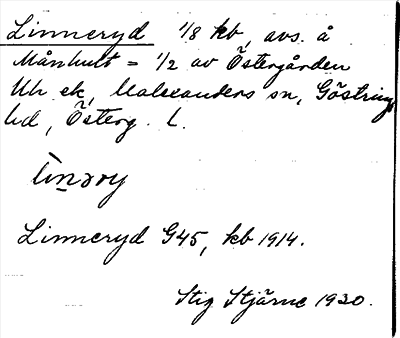 Linneryd 1/8 kb, avs. å
Månhult = 1/2 av Östergården
Uh ek, Malexanders sn, Göstrings
hd, Österg. l.
Linneryd G45, kb 1914.
Stig Stjärne 1930.